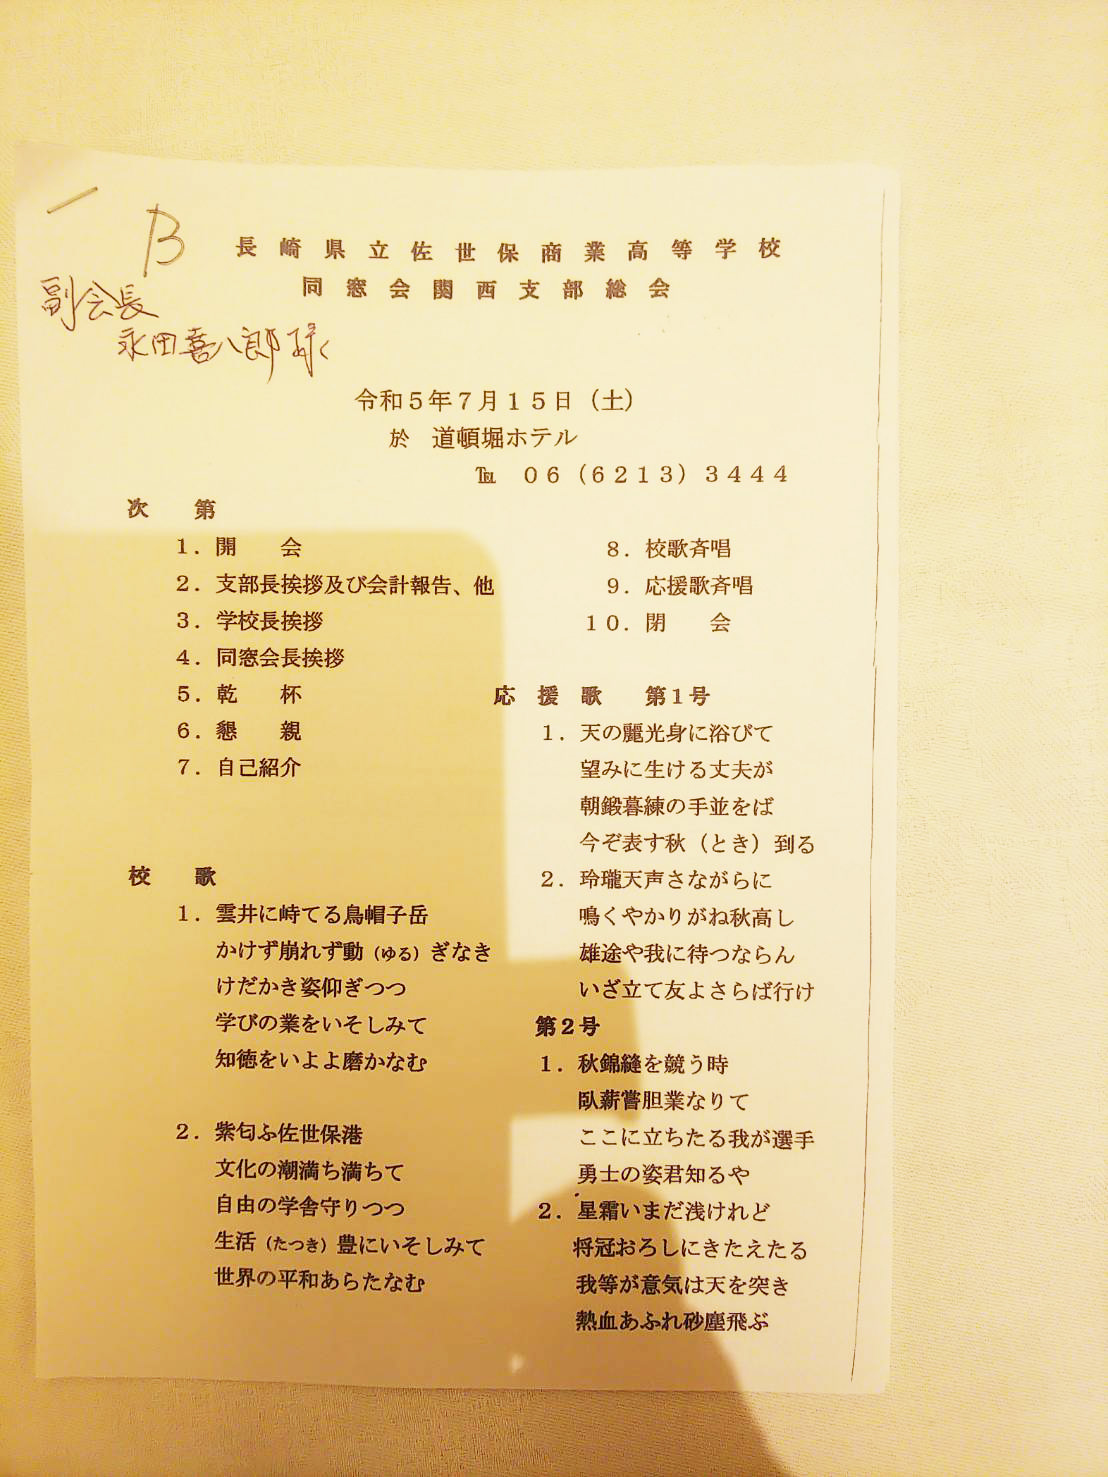 B
副会長
永田喜八郎様
長崎県立佐世保商業高等学校
同窓会関西支部総会
令和5年7月15日（土）
於　道頓堀ホテル
℡　06（6213）3444
次　第
1．開　会
2．支部長挨拶及び会計報告、他
3．学校長挨拶
4．同窓会長挨拶
5．乾　杯
6．懇　親
7．自己紹介
8．校歌斉唱
9．応援歌斉唱
10．閉　会
校　歌
1．雲井に峙てる烏帽子岳
かけず崩れず動（ゆる）ぎなき
けだかき姿仰ぎつつ
学びの業をいそしみて
知徳をいよよ磨かなむ
2．紫匂ふ佐世保港
文化の潮満ち満ちて
自由の学舎守りつつ
生活（たつき）豊にいそしみて
世界の平和あらたなむ
応　援　歌　第1号
1．天の麗光身に浴びて
望みに生ける丈夫が
朝鍛暮練の手並をば
今ぞ表す秋（とき）到る
2．玲瓏天声さながらに
鳴くやかりがね秋高し
雄途や我に待つならん
いざ立て友よさらば行け
第2号
1．秋錦縫を競う時
臥薪嘗胆業なりて
ここに立ちたる我が選手
勇士の姿君知るや
2．星霜いまだ浅けれど
将冠おろしにきたえたる
我等が意気は天を突き
熱血あふれ砂塵飛ぶ